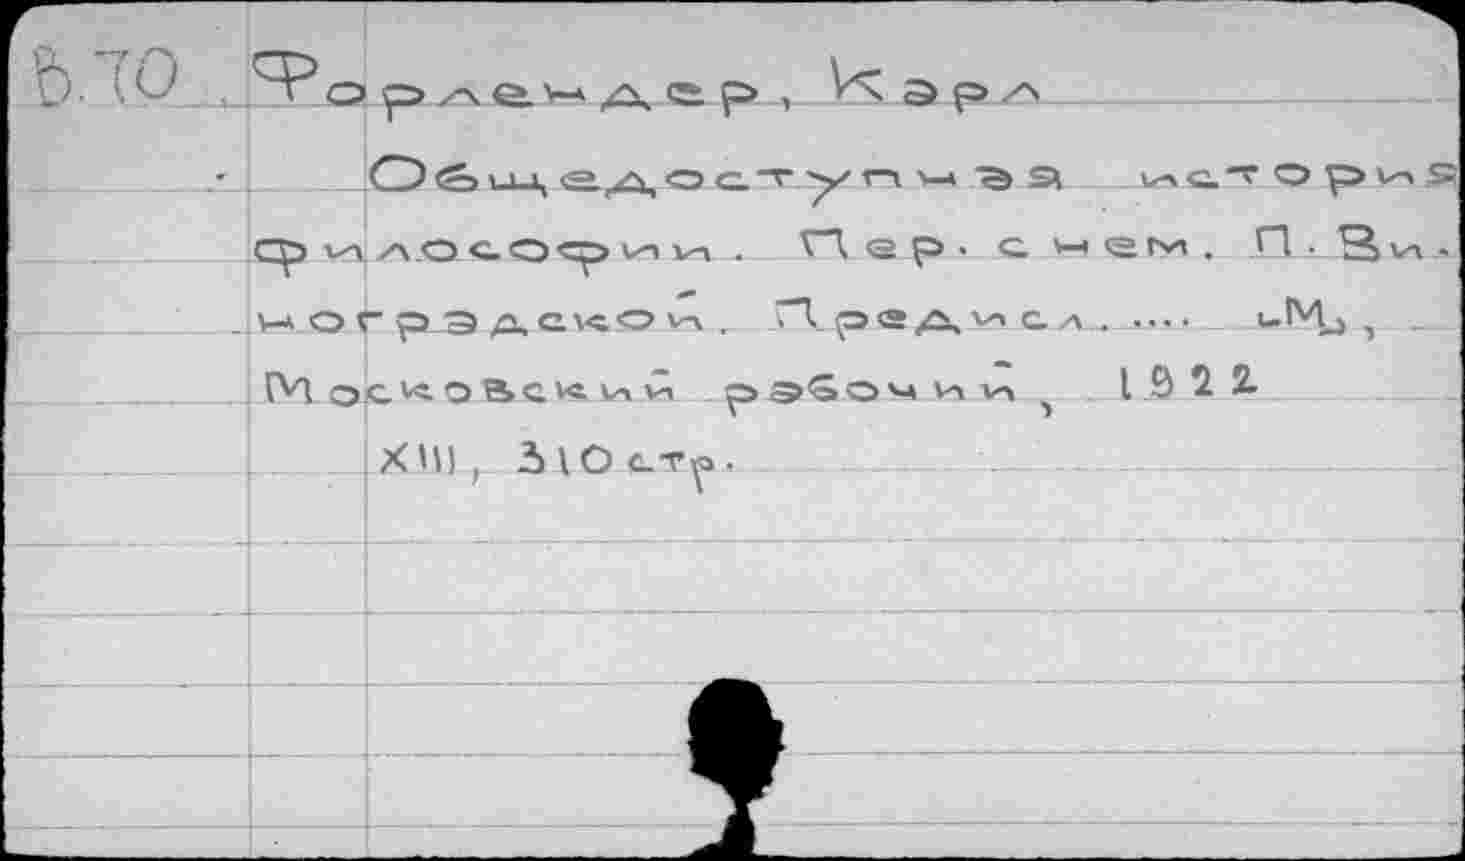 Б.70. Форлендер, Карл
Общедоступная история
философии. Пер. с нем. П. Ви-
ноградской. Предисл. .... М.,
Московский рабочий, 1922
XIII, 310 стр.